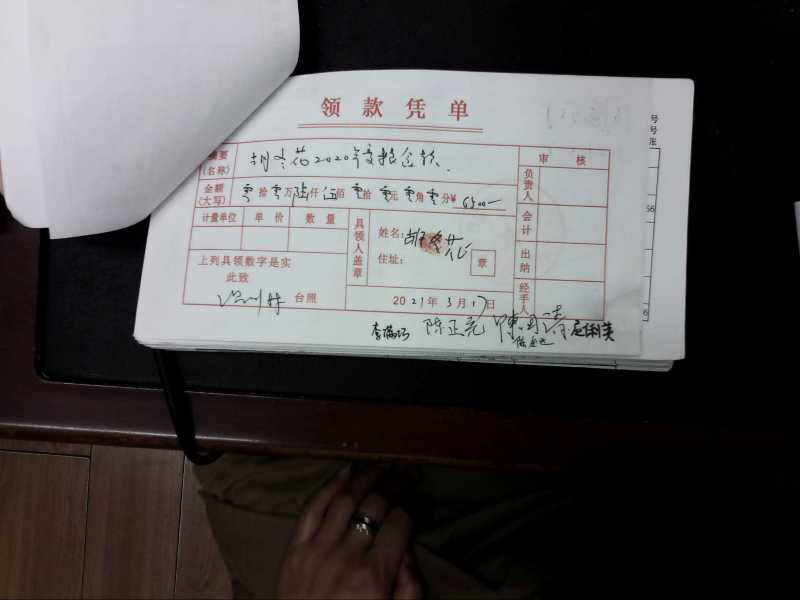 领款凭单
摘要(名称) 胡冬花2020年度 款 审核
金额(大写) 零拾零万陆仟伍佰零拾零元零角零分¥6500—
负责人
计量单位 单价 数量
会计
具领人盖章
姓名: 胡冬花
住址: 章
出纳
上列具领数字是实
此致
台照
2021年3月17日
经手人
陈正亮
号
号
张
56
6